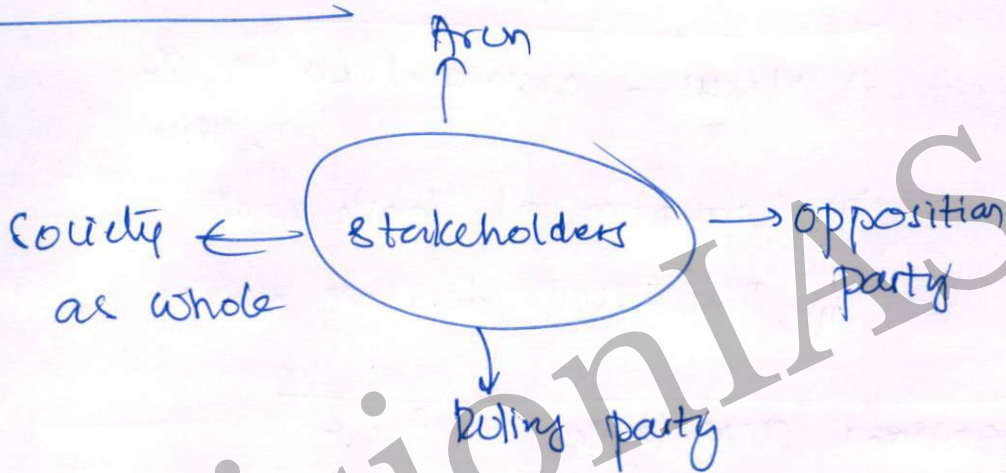 Arun
Society
as whole
Stakeholders
Opposition
party
Ruling party
VisionIAS